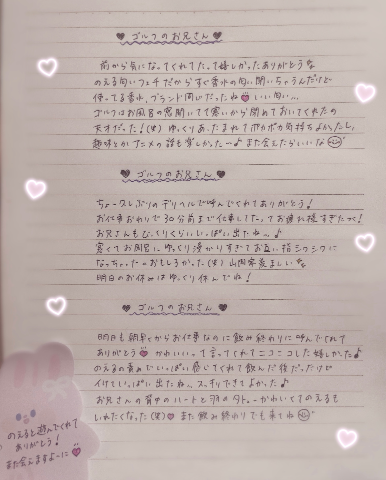 ♥ ゴルフのお兄さん ♥
前から気になってくれてたって嬉しかったありがとう
のえる匂いフェチだからすぐ香水の匂い聞いちゃうんだけど
使ってる香水、ブランド同じだったね いい匂い…
ゴルフはお風呂の窓開いてて寒いから閉めておいてくれたの
天才だった!(笑) ゆっくりあったまれてポカポカ気持ちよかったし、
趣味とかアニメの話も楽しかった〜♪また会えたらいいな
♥ ゴルフのお兄さん ♥
ちょー久しぶりのデリヘルで呼んでくれてありがとう!
お仕事おわりで30分前まで仕事してたってお疲れ様すぎたって!
お兄さんもびっくりくらいいっぱい出たね〜♪
寒くてお風呂にゆっくり浸かりすぎてお互い指シワシワに
なっちゃったのおもしろかった(笑)
明日のお休みはゆっくり休んでね!
♥ ゴルフのお兄さん ♥
明日も朝早くからお仕事なのに飲み終わりに呼んでくれて
ありがとう かわいいって言ってくれてニコニコした嬉しかった♪
のえるの いっぱい感じてくれて飲んだ後だったけど
いっぱい出たね〜、スッキリできてよかった♪
お兄さんの背中のハートと のタトゥーかわいくてのえるも
いれたくなった(笑) また飲み終わりでも来てね
のえると遊んでくれて
ありがとう!
また会えますよーに